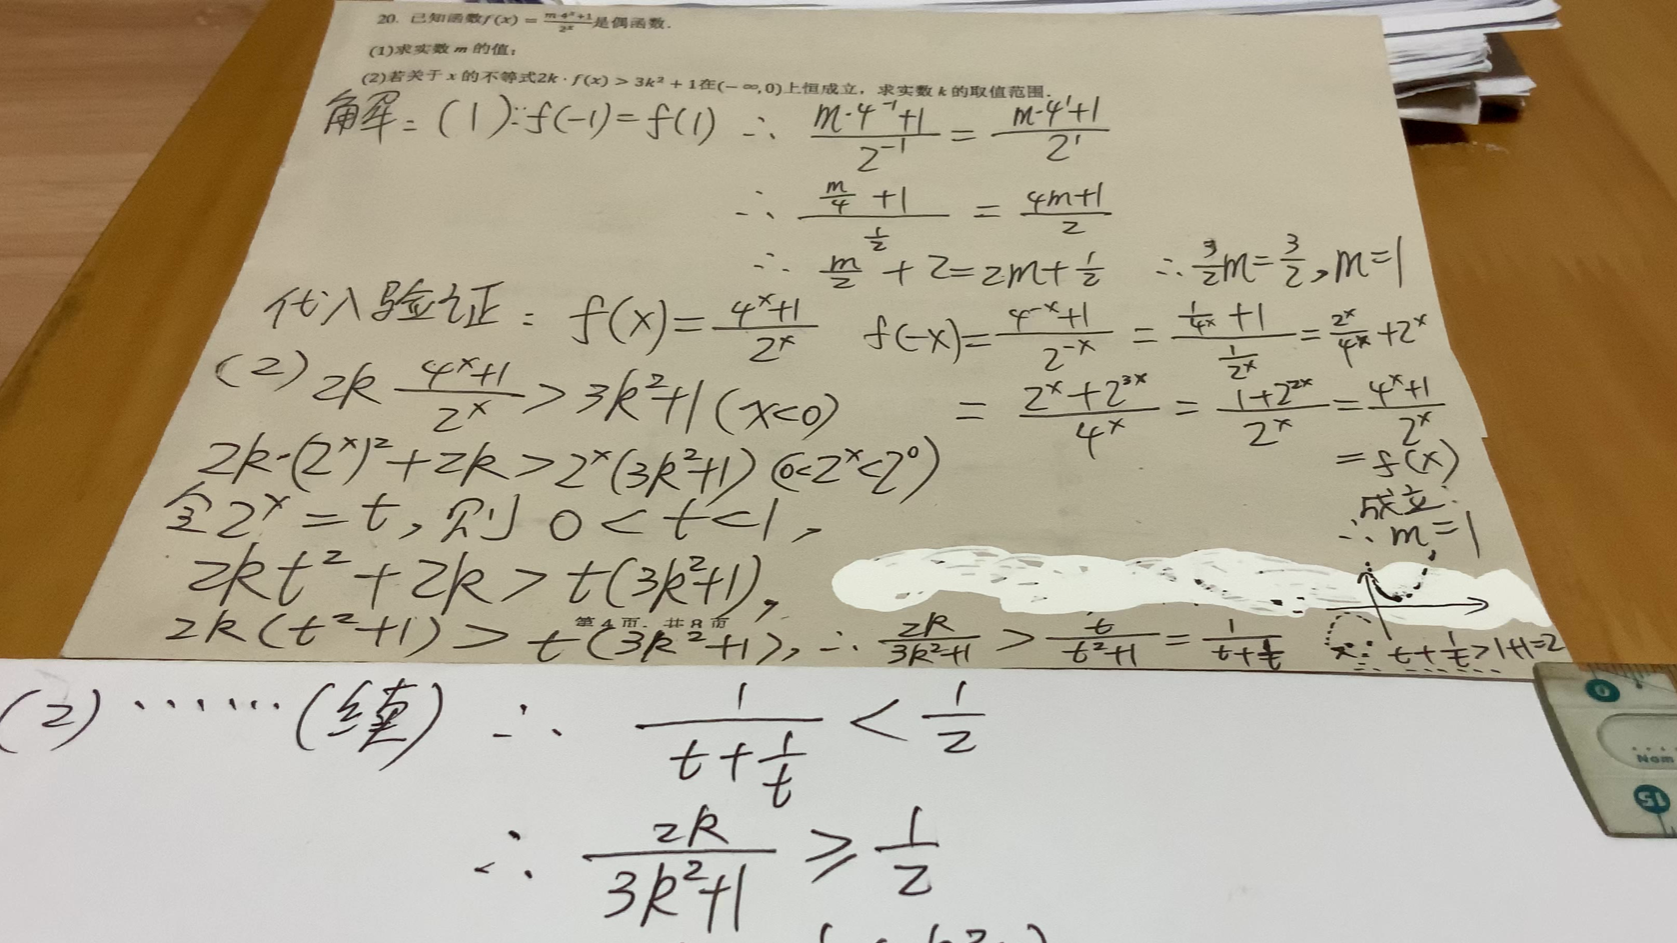 20. 已知函数f(x) = (m·4^x+1)/2^x 是偶函数.
(1)求实数 m 的值;
(2)若关于 x 的不等式2k · f(x) > 3k² + 1在(− ∞,0)上恒成立，求实数 k 的取值范围.
解: (1)∵f(-1)=f(1) ∴ (m·4^-1+1)/2^-1 = (m·4^1+1)/2^1
∴ (m/4 +1)/(1/2) = (4m+1)/2
∴ m/2 + 2 = 2m + 1/2 ∴ 3/2 m = 3/2, m=1
代入验证: f(x) = (4^x+1)/2^x f(-x) = (4^-x+1)/2^-x = (1/4^x +1)/(1/2^x) = 2^x/4^x + 2^x
= (2^x+2^3x)/4^x = (1+2^2x)/2^x = (4^x+1)/2^x
= f(x)
成立
∴ m=1
(2) 2k (4^x+1)/2^x > 3k²+1 (x<0)
2k·(2^x)² + 2k > 2^x(3k²+1) (0<2^x<2^0)
令2^x = t, 则 0 < t < 1,
2kt² + 2k > t(3k²+1),
第 4 页, 共 8 页
2k(t²+1) > t(3k²+1), ∴ 2k/(3k²+1) > t/(t²+1) = 1/(t+1/t)
t+1/t>1+1=2
(2) ······ (续) ∴ 1/(t+1/t) < 1/2
∴ 2k/(3k²+1) ≥ 1/2
0
Nom
15